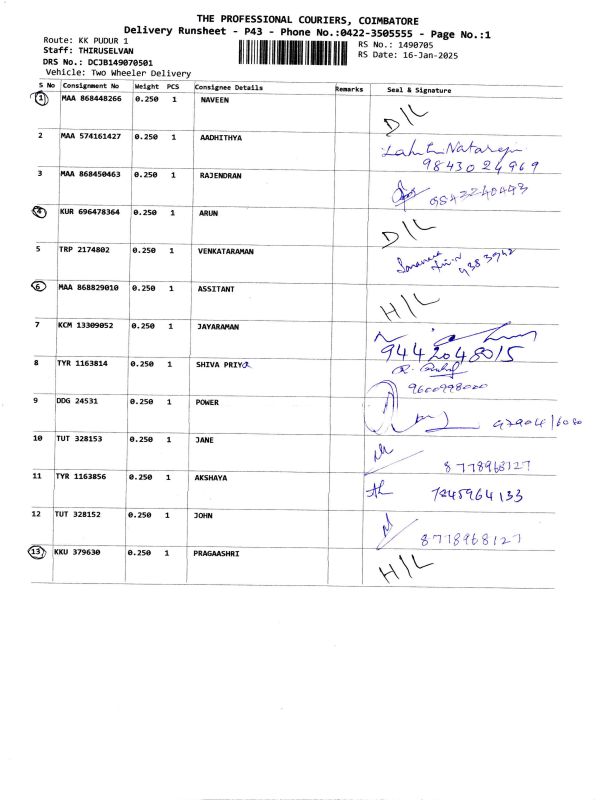 THE PROFESSIONAL COURIERS, COIMBATORE
Delivery Runsheet - P43 - Phone No.:0422-3505555 - Page No.:1
Route: KK PUDUR 1
Staff: THIRUSELVAN
DRS No.: DCJB149070501
Vehicle: Two Wheeler Delivery
RS No.: 1490705
RS Date: 16-Jan-2025
S No Consignment No Weight PCS Consignee Details Remarks Seal & Signature
1 MAA 868448266 0.250 1 NAVEEN D/L
2 MAA 574161427 0.250 1 AADHITHYA
9843024969
3 MAA 868450463 0.250 1 RAJENDRAN 9842240493
4 KUR 696478364 0.250 1 ARUN D/L
5 TRP 2174802 0.250 1 VENKATARAMAN
6 MAA 868829010 0.250 1 ASSITANT H/L
7 KCM 13309052 0.250 1 JAYARAMAN
9442048015
8 TYR 1163814 0.250 1 SHIVA PRIYA
9600998000
9 DDG 24531 0.250 1 POWER
10 TUT 328153 0.250 1 JANE 8778968127
11 TYR 1163856 0.250 1 AKSHAYA 7245964133
12 TUT 328152 0.250 1 JOHN 8778968127
13 KKU 379630 0.250 1 PRAGAASHRI H/L